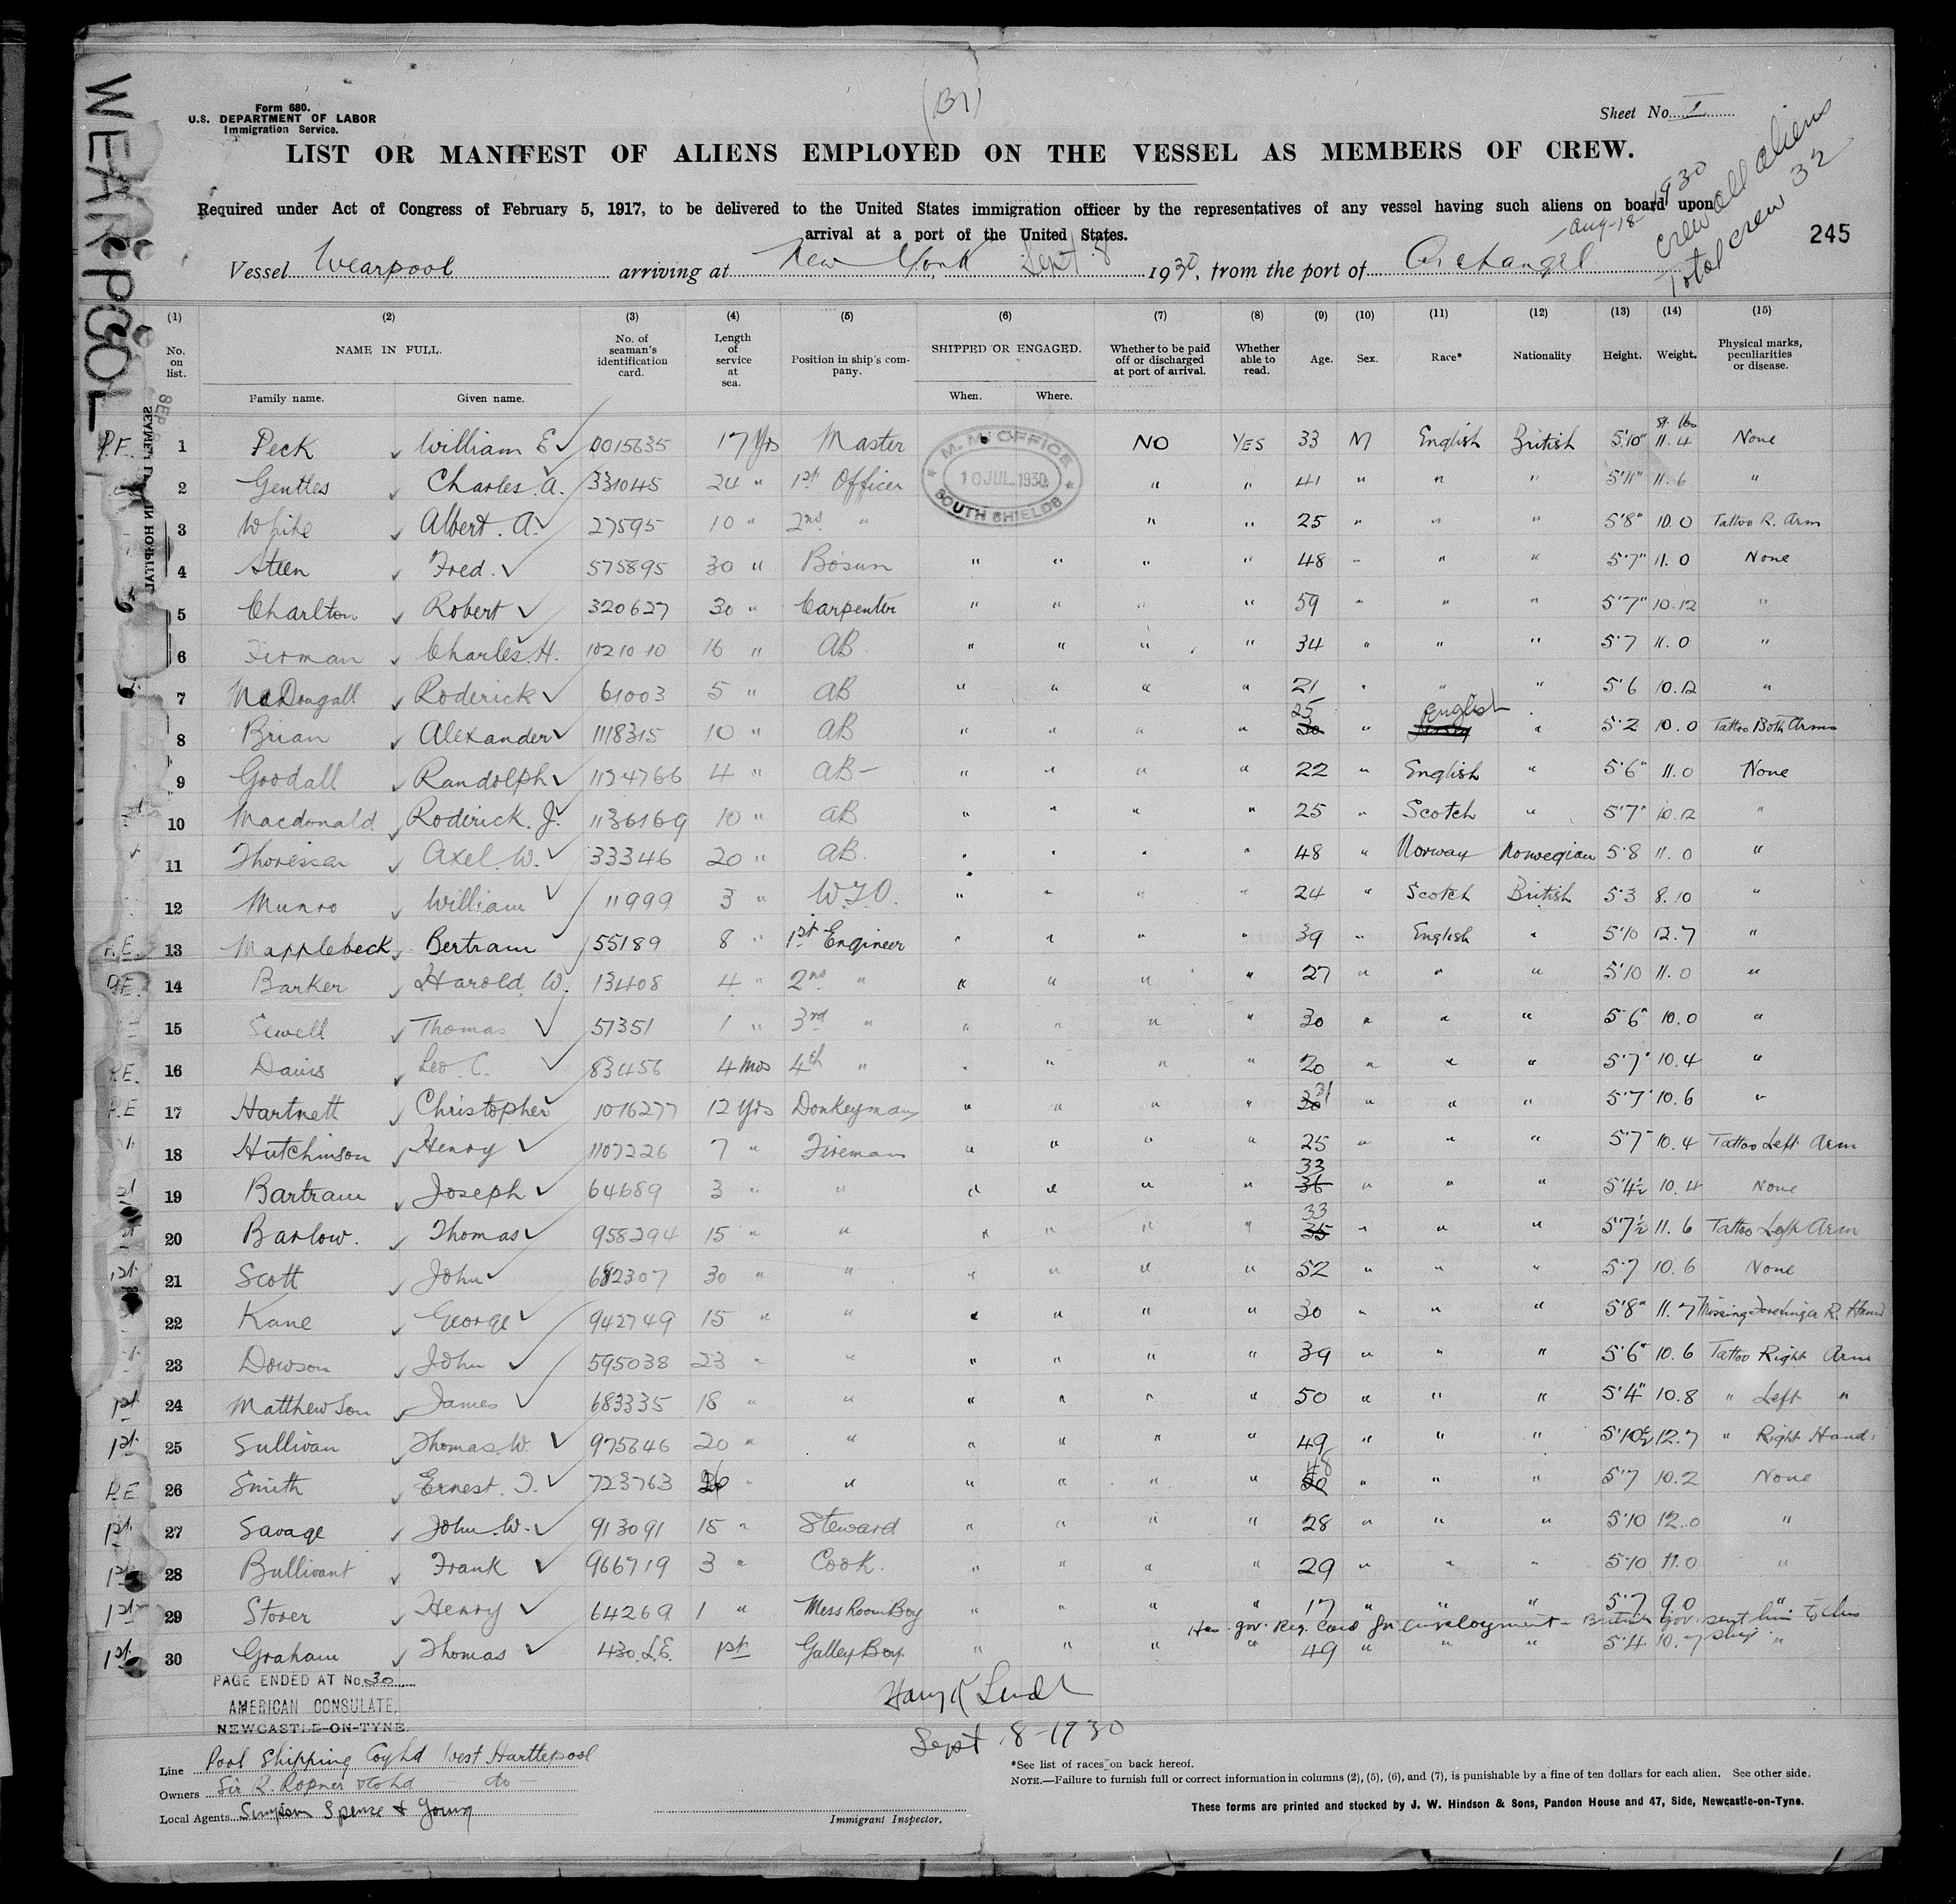 WEARPOOL
Form 680.
U.S. DEPARTMENT OF LABOR
Immigration Service.
Sheet No. I
LIST OR MANIFEST OF ALIENS EMPLOYED ON THE VESSEL AS MEMBERS OF CREW.
Required under Act of Congress of February 5, 1917, to be delivered to the United States immigration officer by the representatives of any vessel having such aliens on board upon
arrival at a port of the United States.
Aug-18 1930
Crew all aliens
Total crew 32
245
Vessel Wearpool arriving at New York, Sept 8 1930, from the port of Archangel
(1) (2) (3) (4) (5) (6) (7) (8) (9) (10) (11) (12) (13) (14) (15)
No. on list. NAME IN FULL. No. of seaman's identification card. Length of service at sea. Position in ship's company. SHIPPED OR ENGAGED. Whether to be paid off or discharged at port of arrival. Whether able to read. Age. Sex. Race* Nationality Height. Weight. Physical marks, peculiarities or disease.
Family name. Given name. When. Where.
M.M. OFFICE
10 JUL. 1930
SOUTH SHIELDS
st. lbs
P.F. 1 Peck William E 0015635 17 Yrs Master NO YES 33 M English British 5'10" 11.4 None
2 Gentles Charles. A. 331045 24 " 1st Officer " " 41 " " " 5'11" 11.6 "
3 White Albert. A. 27595 10 " 2nd " " " 25 " " " 5'8" 10.0 Tattoo R. Arm
4 Steen Fred. 575895 30 " Bosun " " " " 48 " " " 5'7" 11.0 None
5 Charlton Robert 320627 30 " Carpenter " " " " 59 " " " 5'7" 10.12 "
6 Firman Charles. H. 1021010 16 " AB " " " " 34 " " " 5'7 11.0 "
7 McDougall Roderick 61003 5 " AB " " " " 21 " " " 5'6 10.12 "
8 Brian Alexander 1118315 10 " AB " " " " 25 30 " English " 5'2 10.0 Tattoo Both Arms
9 Goodall Randolph 1134766 4 " AB " " " " 22 " English " 5'6" 11.0 None
10 Macdonald Roderick. J. 1136169 10 " AB " " " " 25 " Scotch " 5'7" 10.12 "
11 Thoressen Axel W. 33346 20 " AB. " " " " 48 " Norway Norwegian 5'8 11.0 "
12 Munro William 11999 3 " W.T.O. " " " " 24 " Scotch British 5'3 8.10 "
P.E. 13 Mapplebeck Bertram 55189 8 " 1st Engineer " " " " 39 " English " 5'10 12.7 "
P.E. 14 Barker Harold. W. 13408 4 " 2nd " " " " " 27 " " " 5'10 11.0 "
15 Sewell Thomas 57351 1 " 3rd " " " " " 30 " " " 5'6" 10.0 "
P.E. 16 Davis Leo. C. 83456 4 Mos 4th " " " " " 20 " " " 5'7" 10.4 "
P.E 17 Hartnett Christopher 1076277 12 Yrs Donkeyman " " " " 30 31 " " " 5'7" 10.6 "
18 Hutchinson Henry 1107226 7 " Fireman " " " " 25 " " " 5'7" 10.4 Tattoo Left Arm
19 Bartram Joseph 64689 3 " " " " " " 33 36 " " " 5'4½ 10.4 None
20 Barlow. Thomas 958294 15 " " " " " " 33 35 " " " 5'7½ 11.6 Tattoo Left Arm
1st 21 Scott John 682307 30 " " " " " " 52 " " " 5'7 10.6 None
22 Kane George 942749 15 " " " " " " 30 " " " 5'8" 11.7 Missing Forefinger R. Hand
23 Dowson John 595038 23 " " " " " " 39 " " " 5'6" 10.6 Tattoo Right Arm
1st 24 Matthewson James 683335 18 " " " " " " 50 " " " 5'4" 10.8 " Left "
1st 25 Sullivan Thomas. W. 975846 20 " " " " " " 49 " " " 5'10½ 12.7 " Right Hand.
P.E 26 Smith Ernest. J. 723763 " " " " " " 48 50 " " " 5'7 10.2 None
1st 27 Savage John. W. 913091 15 " Steward " " " " 28 " " " 5'10 12.0 "
1st 28 Bullivant Frank 966719 3 " Cook. " " " " 29 " " " 5'10 11.0 "
1st 29 Storer Henry 64269 1 " Mess Room Boy " " " " 17 " " " 5'7 9.0 "
Has gov. Reg. Card for employment - British gov. sent him to this ship
1st 30 Graham Thomas 430. L.E. 1st Galley Boy. " " " " 49 " " " 5'4 10.7 "
PAGE ENDED AT No. 30
AMERICAN CONSULATE,
NEWCASTLE-ON-TYNE.
Sept 8-1930
Line Pool Shipping Coy Ltd West Hartlepool
Owners Sir R. Ropner & Co Ltd - do -
Local Agents Simpson Spence & Young
Immigrant Inspector.
*See list of races on back hereof.
NOTE.—Failure to furnish full or correct information in columns (2), (5), (6), and (7), is punishable by a fine of ten dollars for each alien. See other side.
These forms are printed and stocked by J. W. Hindson & Sons, Pandon House and 47, Side, Newcastle-on-Tyne.